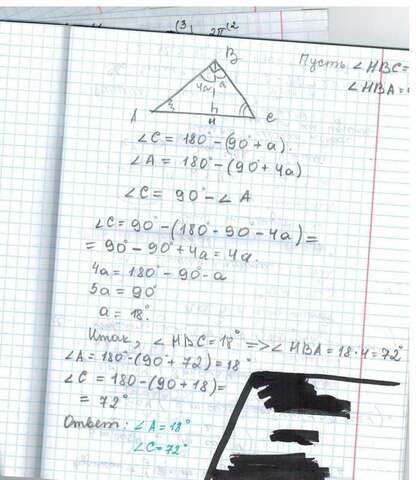 Пусть ∠HBC=
∠HBA=
B
4a a
A H C
∠C = 180° - (90° + a).
∠A = 180° - (90° + 4a)
∠C = 90° - ∠A
∠C = 90° - (180° - 90° - 4a) =
= 90° - 90° + 4a = 4a.
4a = 180° - 90° - a
5a = 90°
a = 18°.
Итак, ∠HBC = 18° => ∠HBA = 18·4 = 72°
∠A = 180° - (90° + 72) = 18°
∠C = 180 - (90° + 18) =
= 72°
Ответ: ∠A = 18°
∠C = 72°